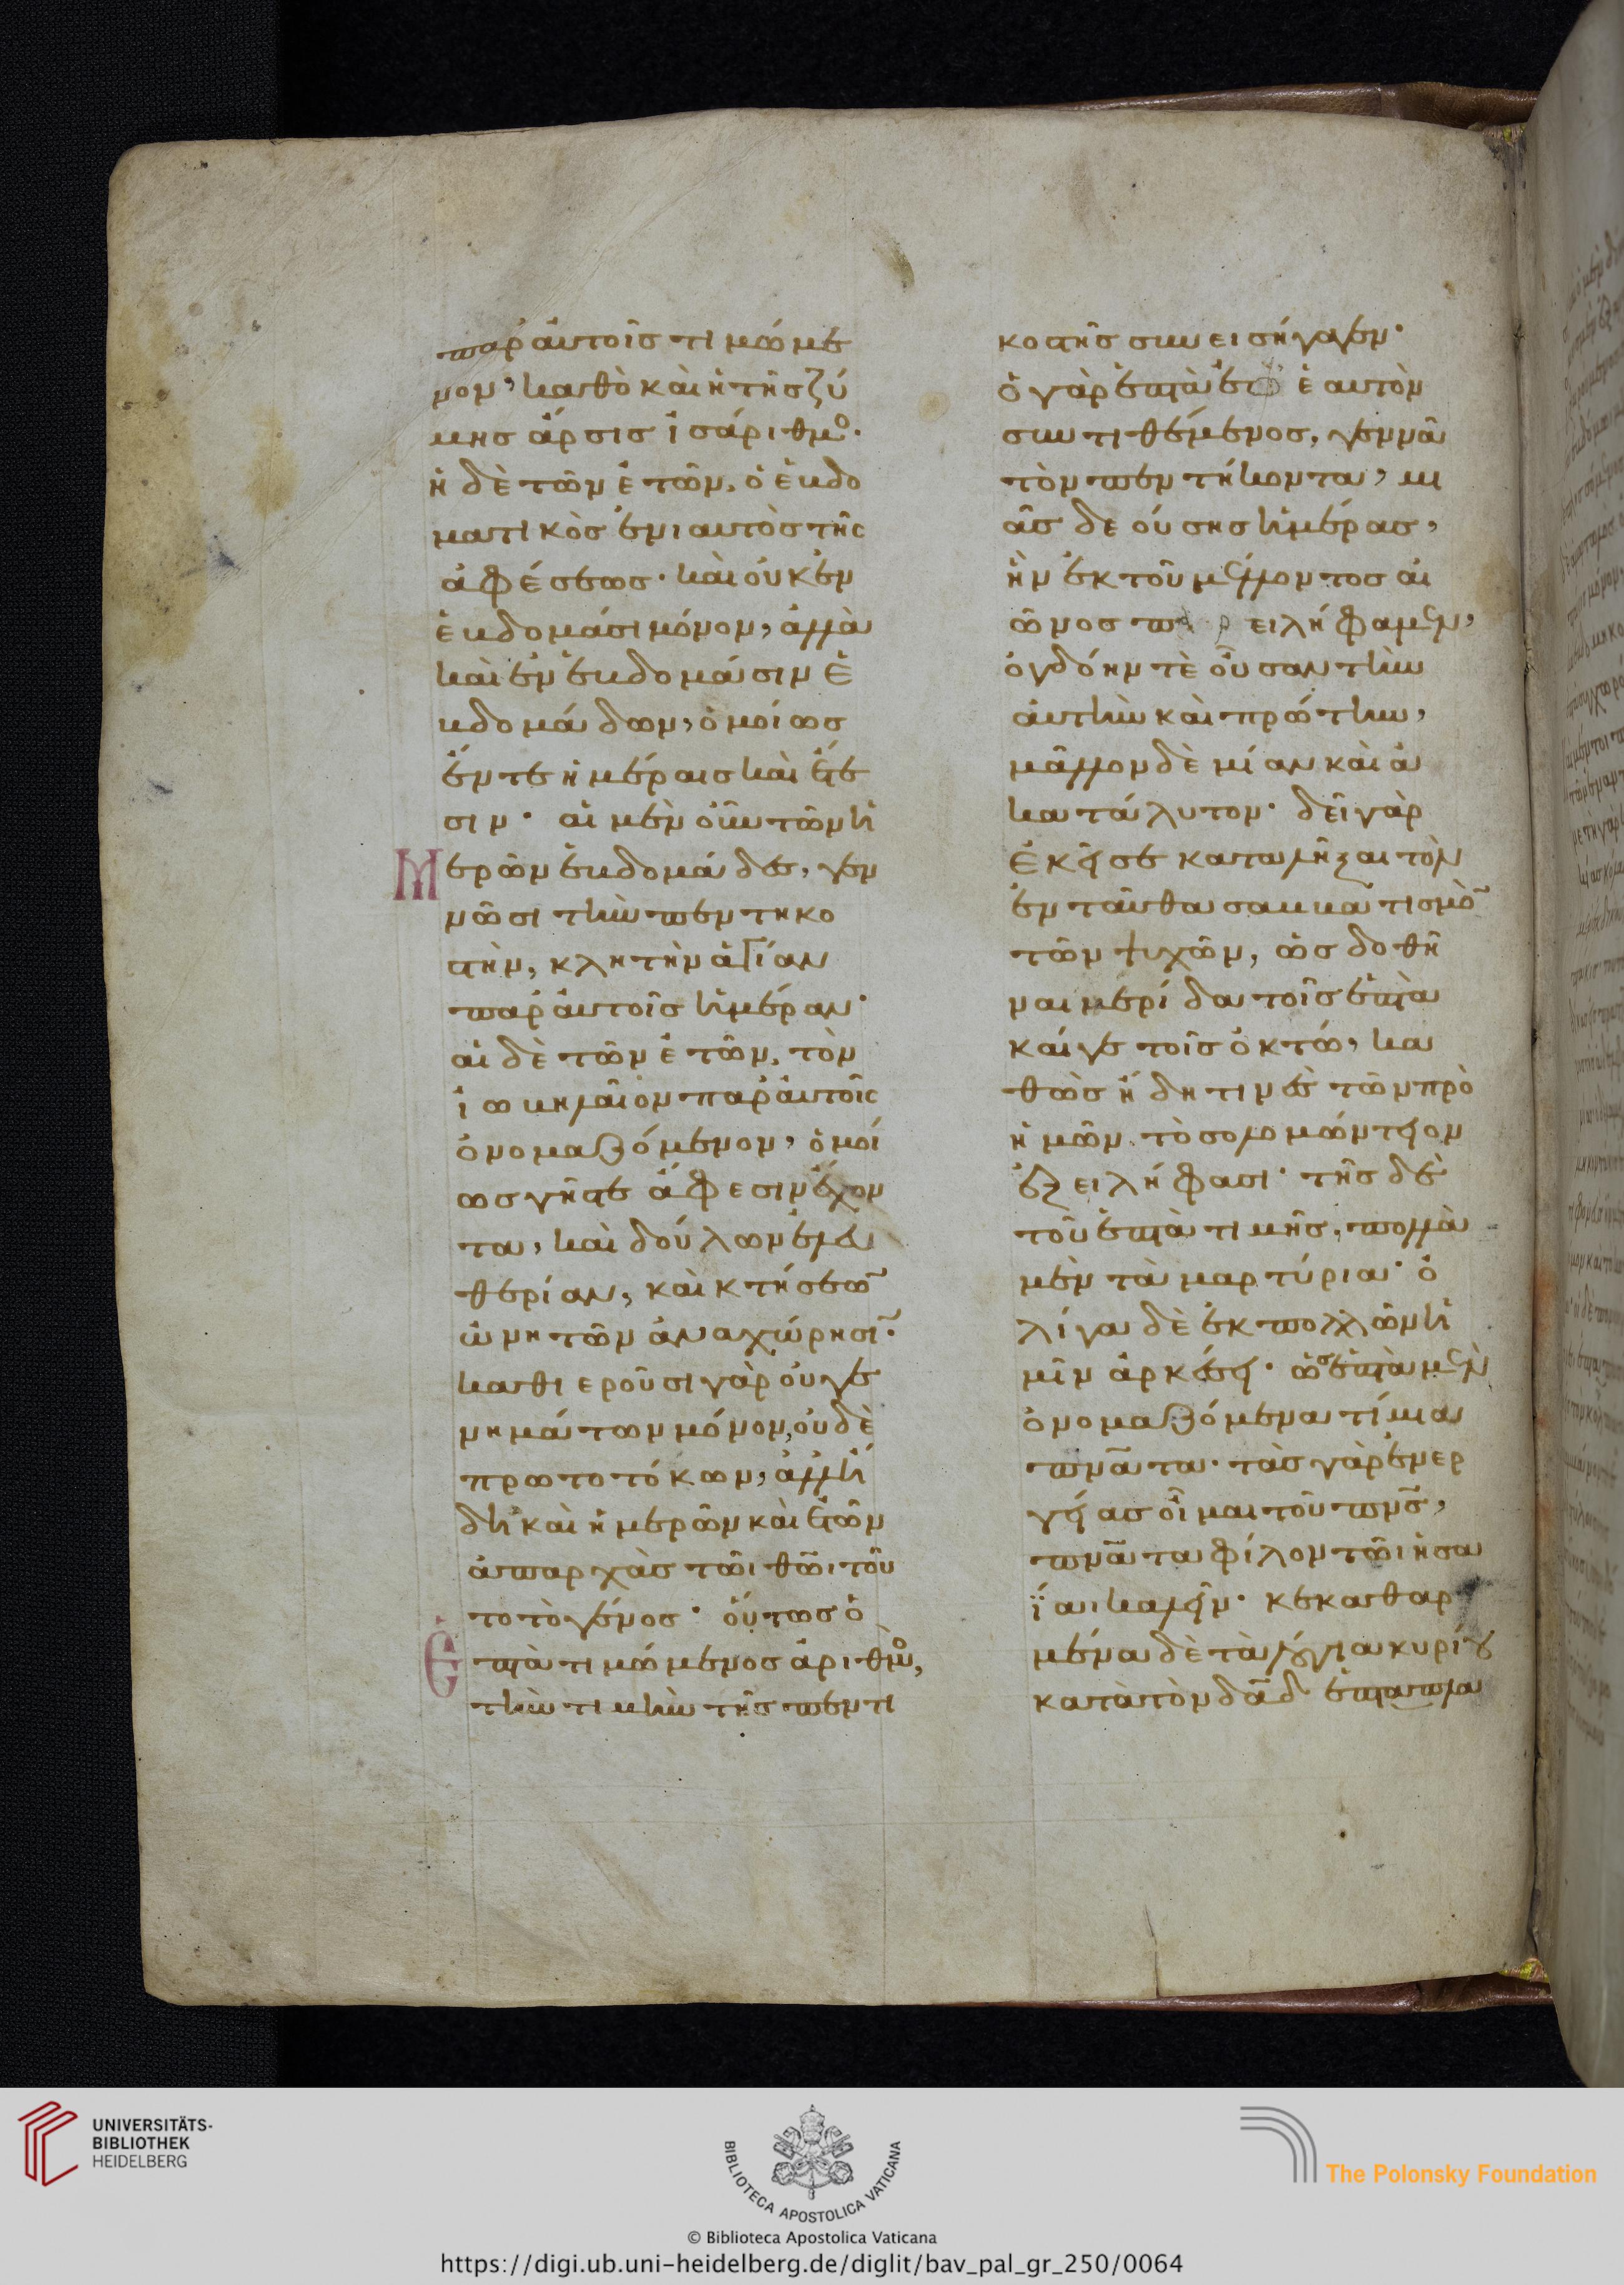 παρ' αὐτοῖς τιμώμε
νον, καθὸ καὶ ἡ τῆς ζύ
μης ἄρσις ἰσάριθμο·
ἡ δὲ τῶν ἐτῶν, ὁ ἑβδο
ματικὸς ἐνιαυτὸς τῆς
ἀφέσεως· καὶ οὐκ ἐν
ἑβδομάσι μόνον, ἀλλὰ
καὶ ἐν ἑβδομάσιν ἑ
βδομάδων, ὁμοίως
ἔν τε ἡμέραις καὶ ἔτε
σιν· αἱ μὲν οὖν τῶν ἡ
μερῶν ἑβδομάδες, γεν
νῶσι τὴν πεντηκο
στὴν, κλητὴν ἁγίαν
παρ' αὐτοῖς ἡμέραν·
αἱ δὲ τῶν ἐτῶν, τὸν
ἰωβηλαῖον παρ' αὐτοῖς
ὀνομαζόμενον, ὁμοί
ως γῆς τε ἄφεσιν ἔχον
τα, καὶ δούλων ἐλευ
θερίαν, καὶ κτήσεω̄
ὠνητῶν ἀναχώρησῑ·
καθιεροῦσι γὰρ οὐ γε
νημάτων μόνον, οὐδὲ
πρωτοτόκων, ἀλλ' ἤ
δη καὶ ἡμερῶν καὶ ἐτῶν
ἀπαρχὰς τῶι θ̅ῶ̅ι τοῦ
το τὸ γένος· οὕτως ὁ
ἑπτὰ τιμώμενος ἀριθμὸ,
τὴν τιμὴν τῆς πεντη
κοστῆς συνεισήγαγεν·
ὁ γὰρ ἑπτὰ ἐφ' ἑαυτὸν
συντιθέμενος, γεννᾶ
τὸν πεντήκοντα, μι
ᾶς δεούσης ἡμέρας,
ἣν ἐκ τοῦ μέλλοντος αἰ
ῶνος προσειλήφαμεν,
ὀγδόην τὲ οὖσαν τὴν
αὐτὴν καὶ πρώτην,
μᾶλλον δὲ μίαν καὶ ἀ
κατάλυτον· δεῖ γὰρ
ἐκεῖσε καταλῆξαι τὸν
ἐνταῦθα σαββατισμὸ̄
τῶν ψυχῶν, ὡς δοθῆ
ναι μερίδα τοῖς ἑπτὰ
καί γε τοῖς ὀκτώ, κα
θὼς ἤδη τινὲς τῶν πρὸ
ἡμῶν τὸ σολομώντειον
ἐξειλήφασι· τῆς δὲ
τοῦ ἑπτὰ τιμῆς, πολλὰ
μὲν τὰ μαρτύρια· ὀ
λίγα δὲ ἐκ πολλῶν ἡ
μῖν ἀρκέσει· ὡς ἑπτὰ μὲν
ὀνομαζόμενα τίμια
π̅ν̅α̅τα· τὰς γὰρ ἐνερ
γείας οἶμαι τοῦ π̅ν̅ς̅,
π̅ν̅α̅τα φίλον τῶι ἡσα
ΐαι καλεῖν· κεκαθαρ
μένα δὲ τὰ λόγια κυρίου
κατὰ τὸν δ̅α̅δ̅ ἑπταπλα
UNIVERSITÄTS-
BIBLIOTHEK
HEIDELBERG
BIBLIOTECA APOSTOLICA VATICANA
The Polonsky Foundation
© Biblioteca Apostolica Vaticana
https://digi.ub.uni-heidelberg.de/diglit/bav_pal_gr_250/0064